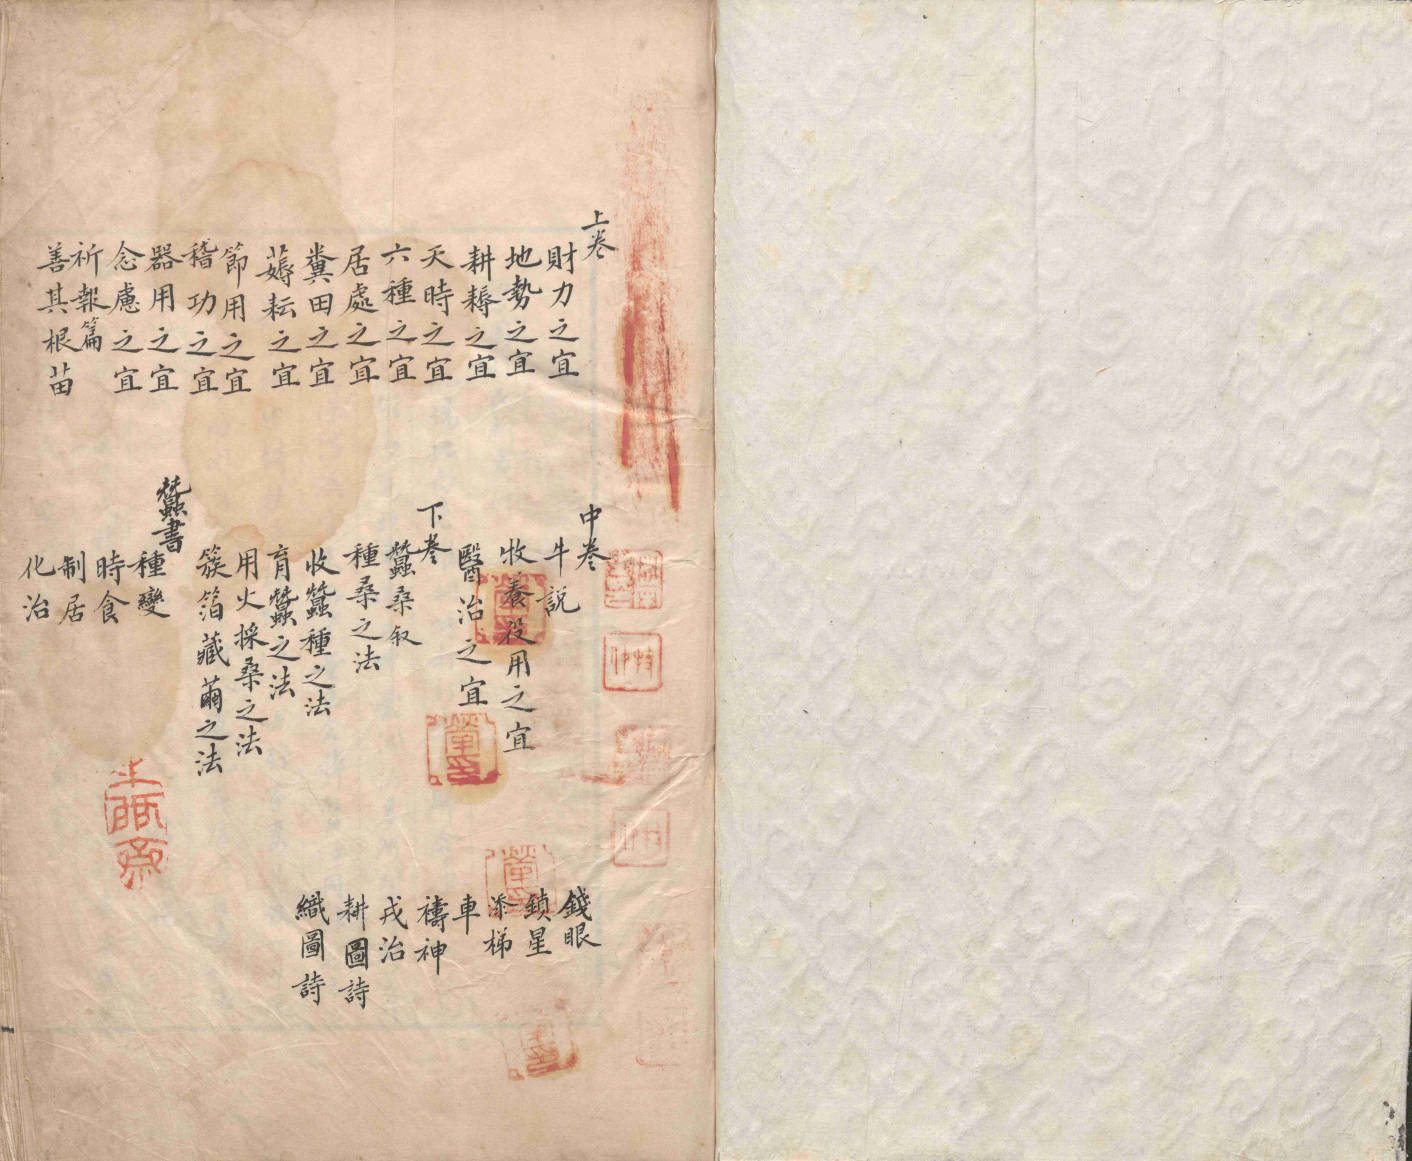 上卷
財力之宜
地勢之宜
耕耨之宜
天時之宜
六種之宜
居處之宜
糞田之宜
薅耘之宜
節用之宜
稽功之宜
器用之宜
念慮之宜
祈報篇
善其根苗
中卷
牛說
牧養役用之宜
醫治之宜
下卷
蠶桑叙
種桑之法
收蠶種之法
育蠶之法
用火採桑之法
簇箔藏繭之法
蠶書
種變
時食
制居
化治
錢眼
鎖星
添梯
車
禱神
戎治
耕圖詩
織圖詩